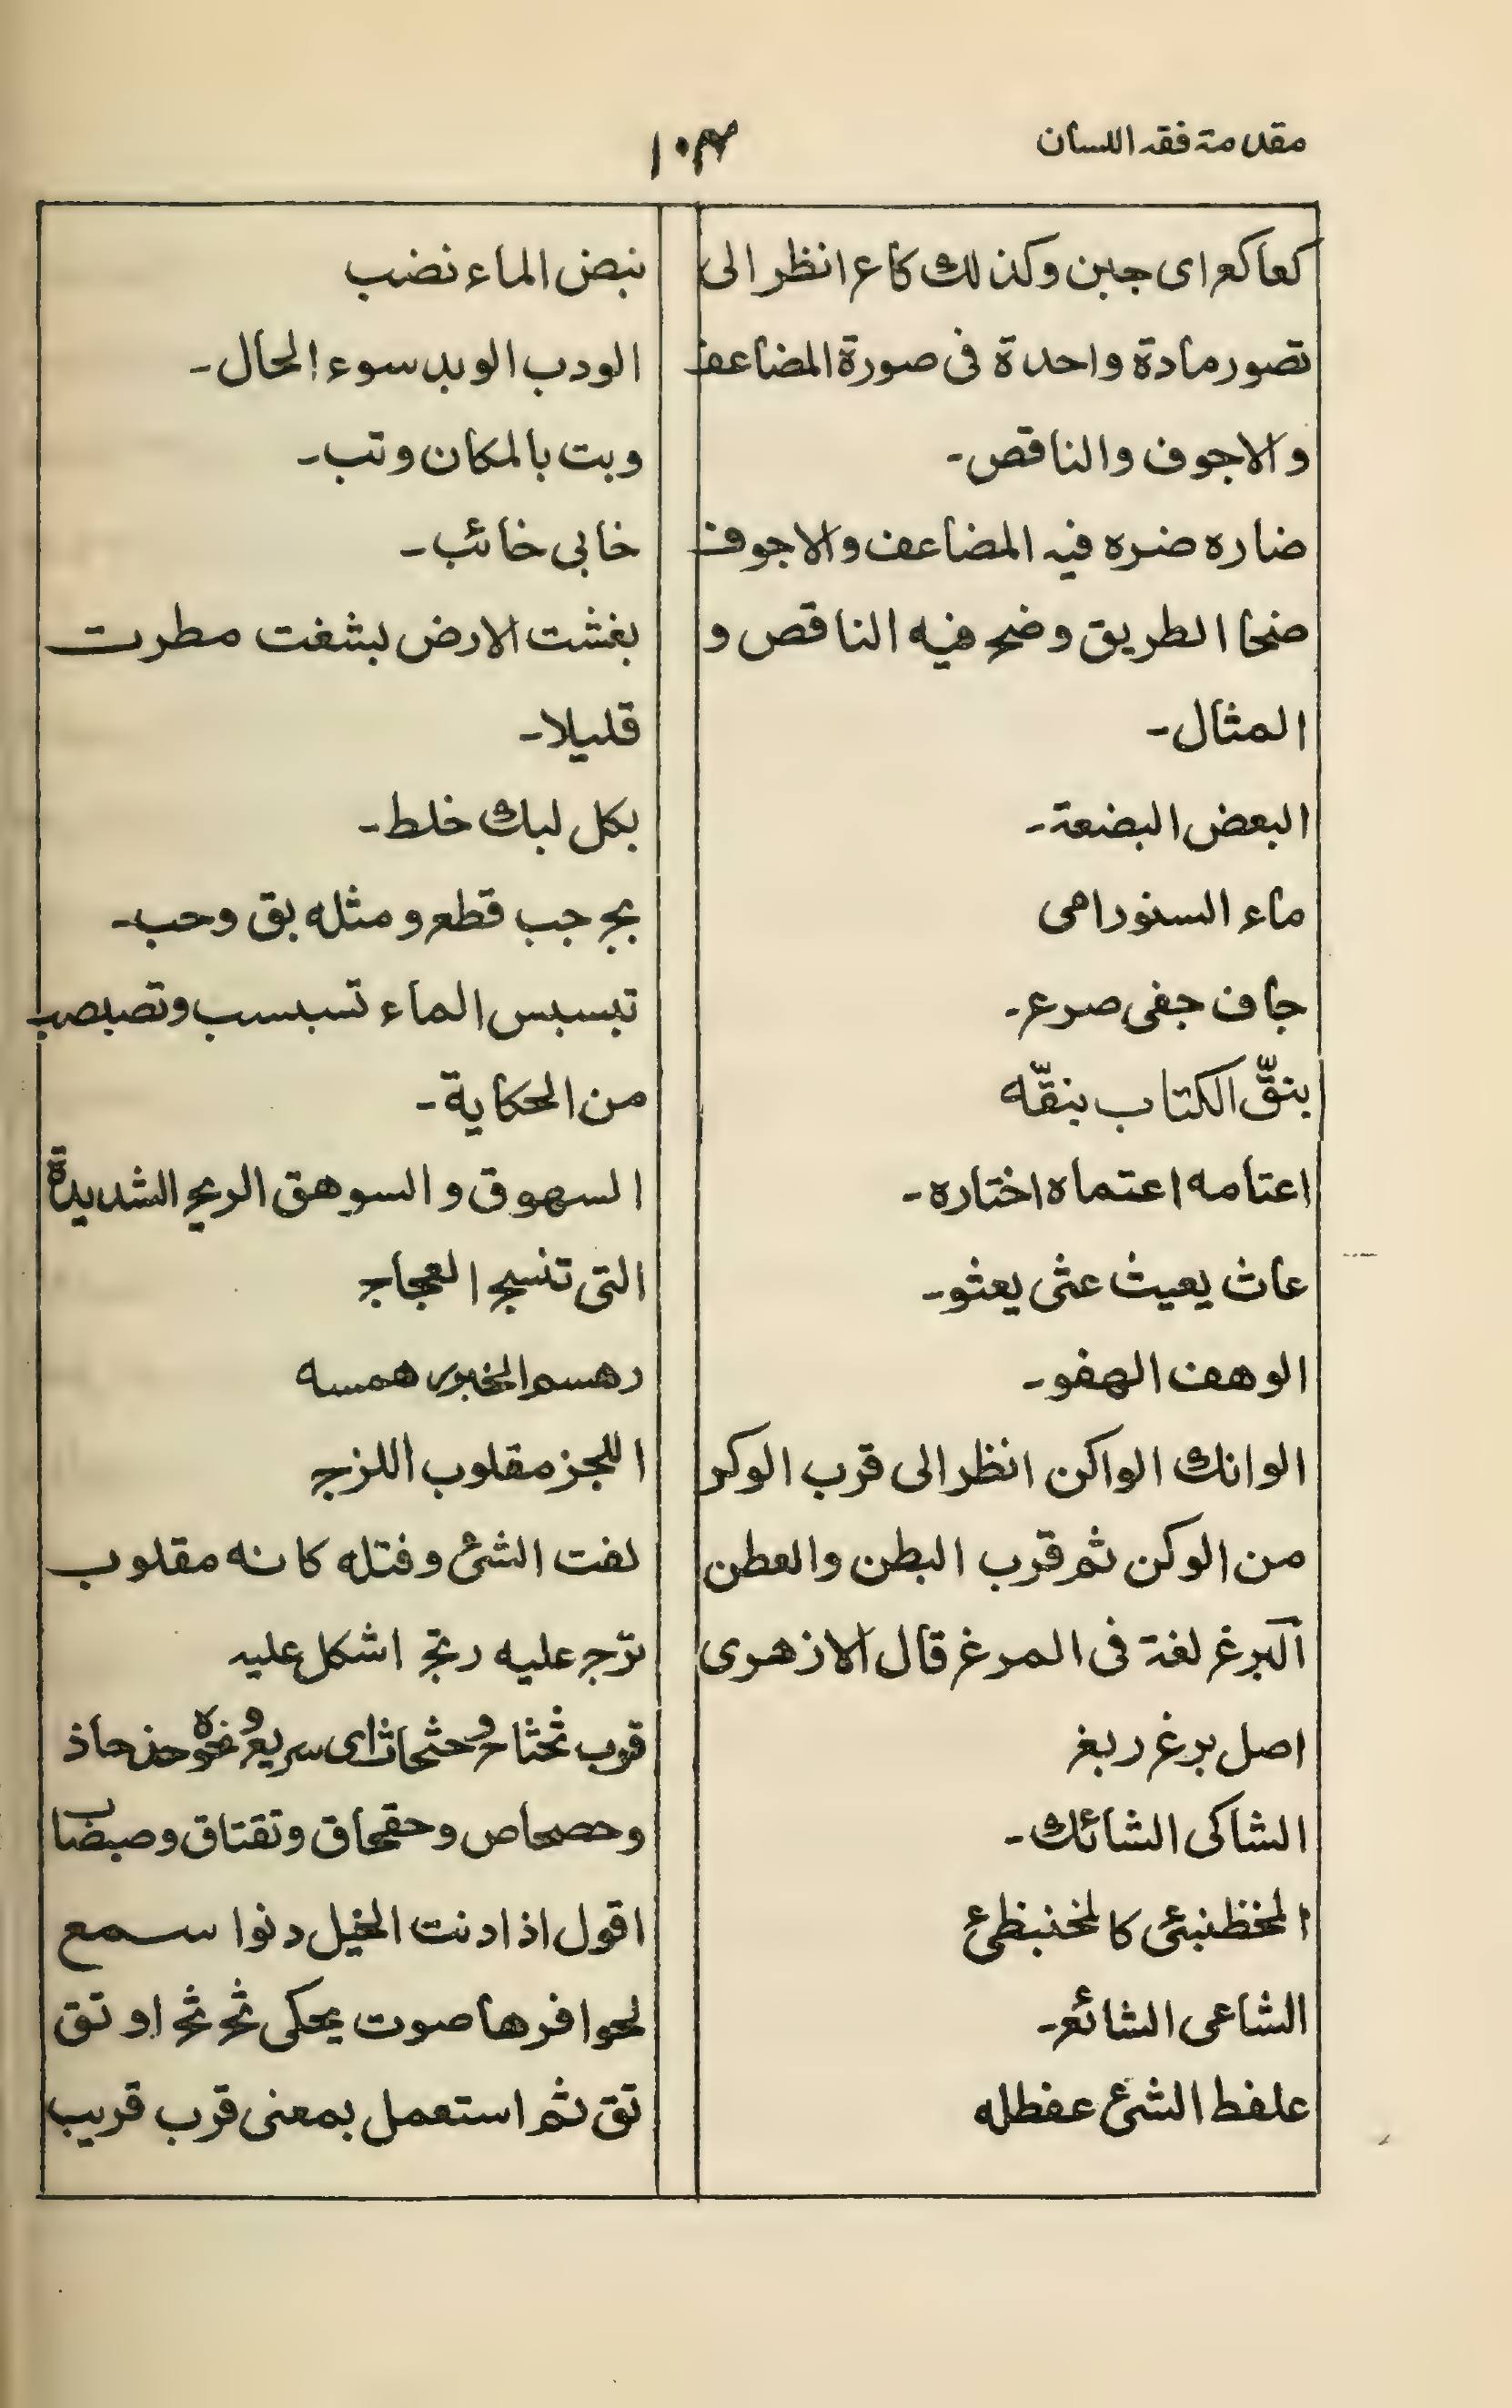 مقدمة فقه اللسان
١٠٤
كعا كع اى جبن وكذلك كاع انظر الى
تصور مادة واحدة فى صورة المضاعف
والاجوف والناقص۔
ضاره ضره فيه المضاعف والاجوف
ضحا الطريق وضح فيه الناقص و
المثال۔
البعض البضعة۔
ماء السنور امى
جاف جفى صرع۔
بنقّ الكتاب بنقّه
اعتامه اعتماه اختاره۔
عاث يعيث عثى يعثو۔
الوهف الهفو۔
الوانك الواكن انظر الى قرب الوكر
من الوكن ثم قرب البطن والعطن
البرغ لغة فى المرغ قال الازهرى
اصل برغ ربغ
الشاكى الشائك۔
المخظنبئى كالمخنبظئ
الشاعى الشائع۔
علفط الشئ عفطله
نبض الماء نضب
الودب الوبد سوء الحال۔
وبت بالمكان وتب۔
خابى خائب۔
بغشت الارض بشغت مطرت
قليلا۔
بكل لبك خلط۔
بج جب قطع ومثله بق وحب۔
تبسبس الماء تسبسب وتصبصب
من الحكاية۔
السهوق والسوهق الريح الشديدة
التى تنسج العجاج
رهسم الخبر همسه
اللجز مقلوب اللزج
لفت الشئ وفتله كانه مقلوب
ترج عليه رتج اشكل عليه
قرب ثحثاح وحثحاث اى سريع ونحوه حذحاذ
وحصحاص وحقحاق وتقتاق وصبضاب
اقول اذا دنت الخيل دنوا سمع
لحوافرها صوت يحكى ثح ثح او تق
تق ثم استعمل بمعنى قرب قريب